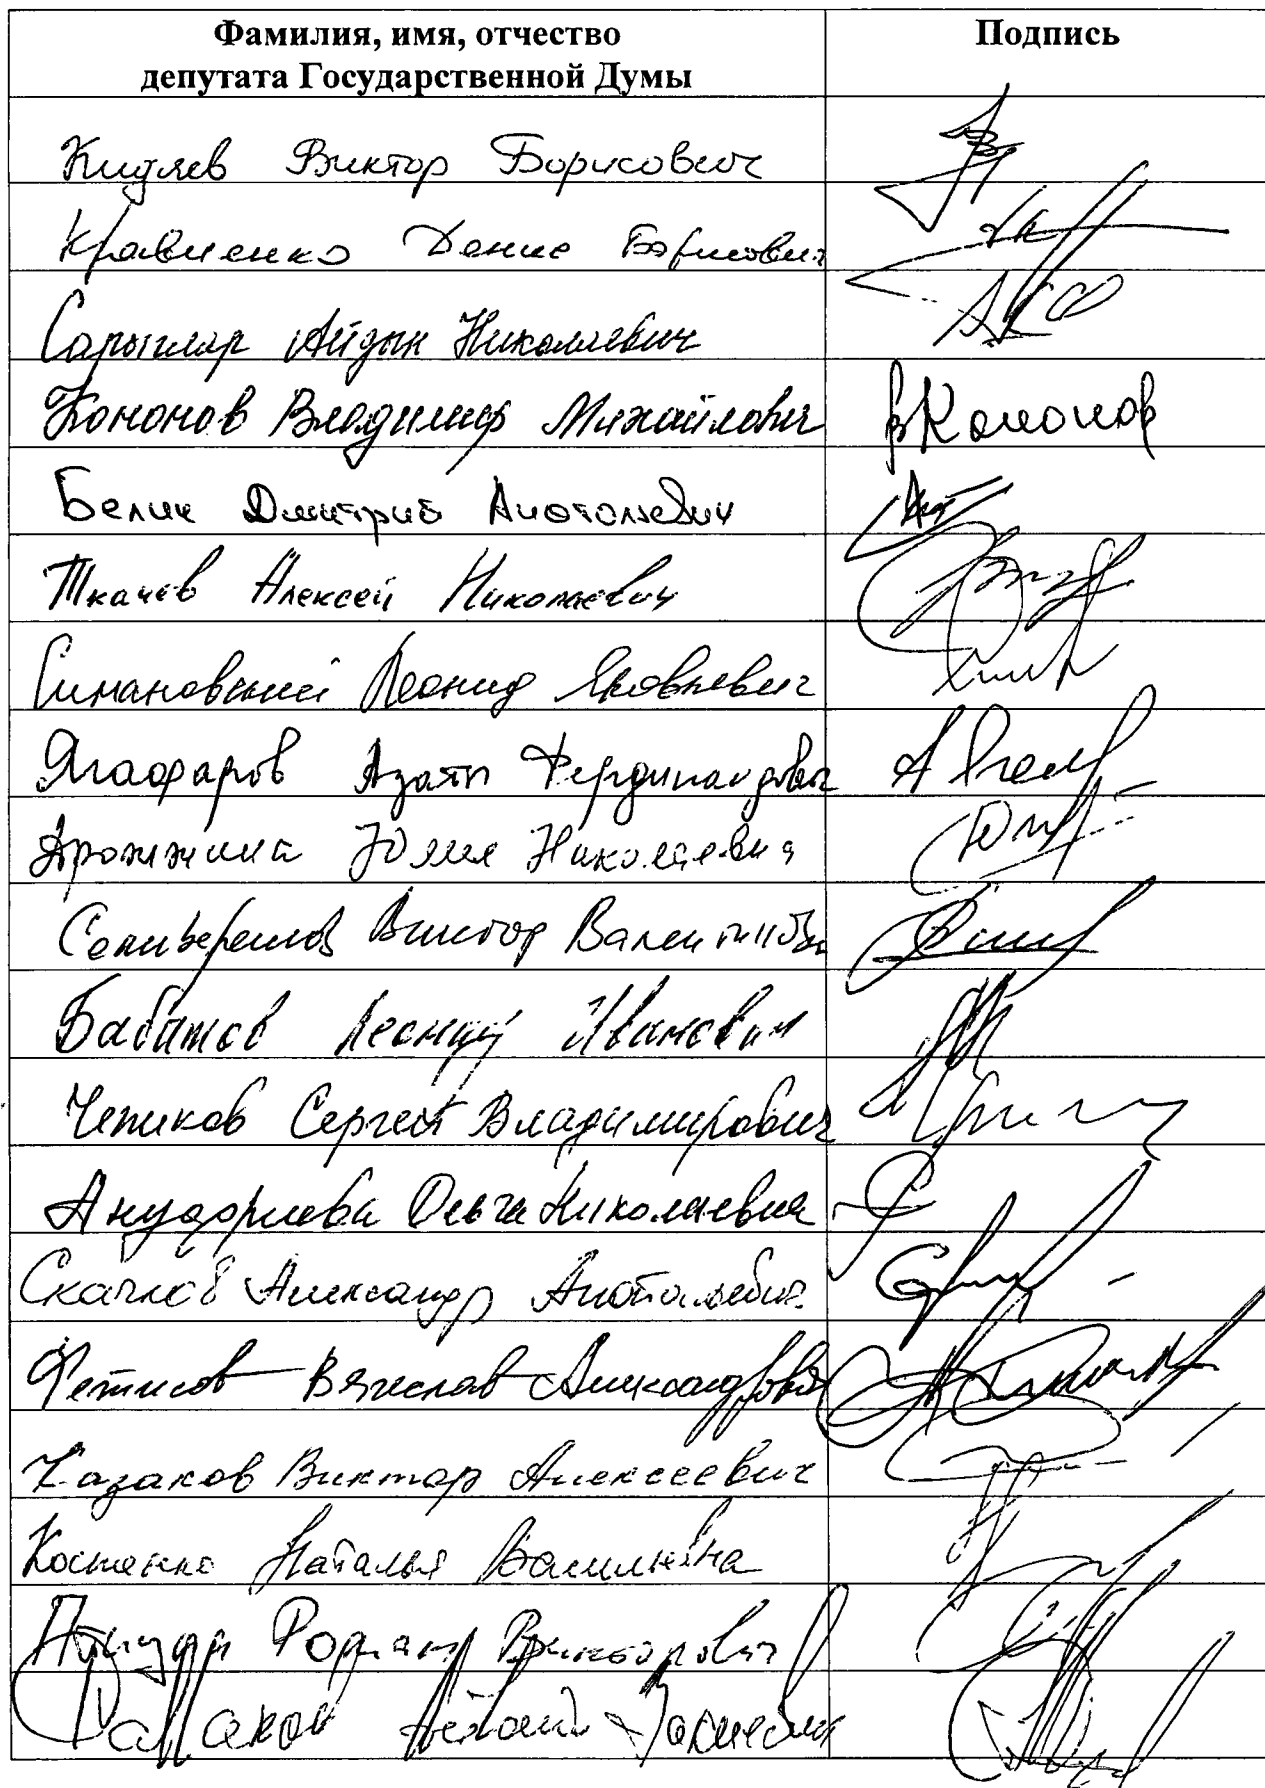 Фамилия, имя, отчество
депутата Государственной Думы
Подпись
Кидяев Виктор Борисович
Кравченко Денис Борисович
Сарыглар Айдын Николаевич
Кононов Владимир Михайлович
ВКононов
Белик Дмитрий Анатольевич
Ткачёв Алексей Николаевич
Симановский Леонид Яковлевич
Ягафаров Азат Фердинандович
Дрожжина Юлия Николаевна
Селиверстов Виктор Валентинович
Бабашов Леонид Иванович
Чепиков Сергей Владимирович
Ануфриева Ольга Николаевна
Скачков Александр Анатольевич
Фетисов Вячеслав Александрович
Казаков Виктор Алексеевич
Костенко Наталья Васильевна
Роман Викторович